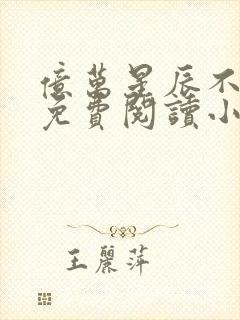 億萬星辰不
免費閱讀小
王麗萍